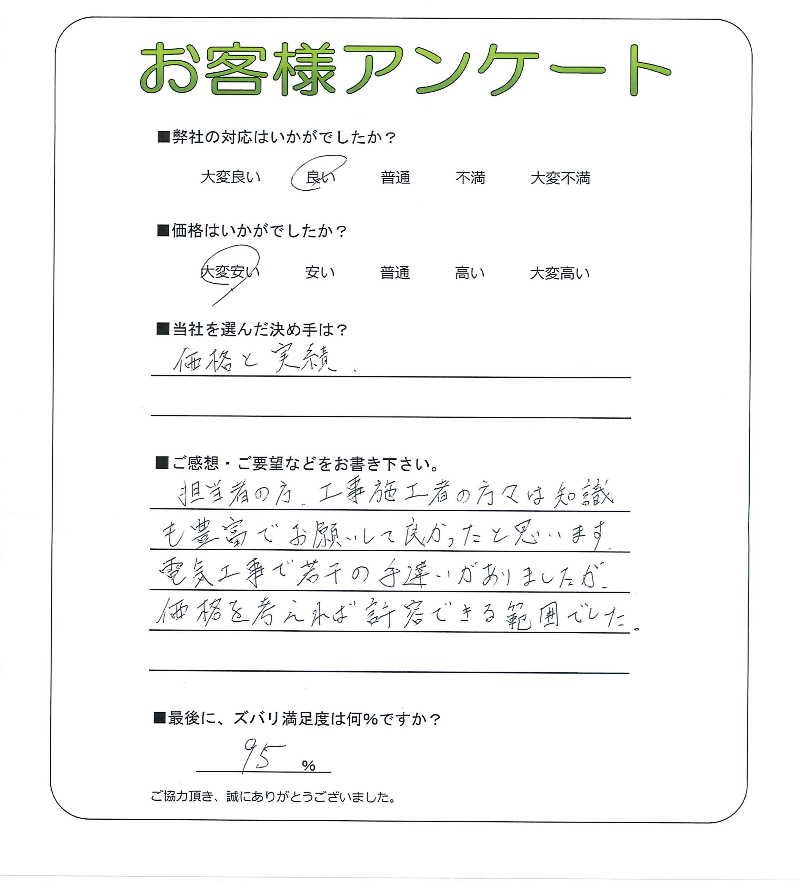 お客様アンケート
■弊社の対応はいかがでしたか？
大変良い 良い 普通 不満 大変不満
■価格はいかがでしたか？
大変安い 安い 普通 高い 大変高い
■当社を選んだ決め手は？
価格と実績.
■ご感想・ご要望などをお書き下さい。
担当者の方、工事施工者の方々は知識
も豊富でお願いして良かったと思います.
電気工事で若干の手違いがありましたが、
価格を考えれば許容できる範囲でした。
■最後に、ズバリ満足度は何%ですか？
95 %
ご協力頂き、誠にありがとうございました。